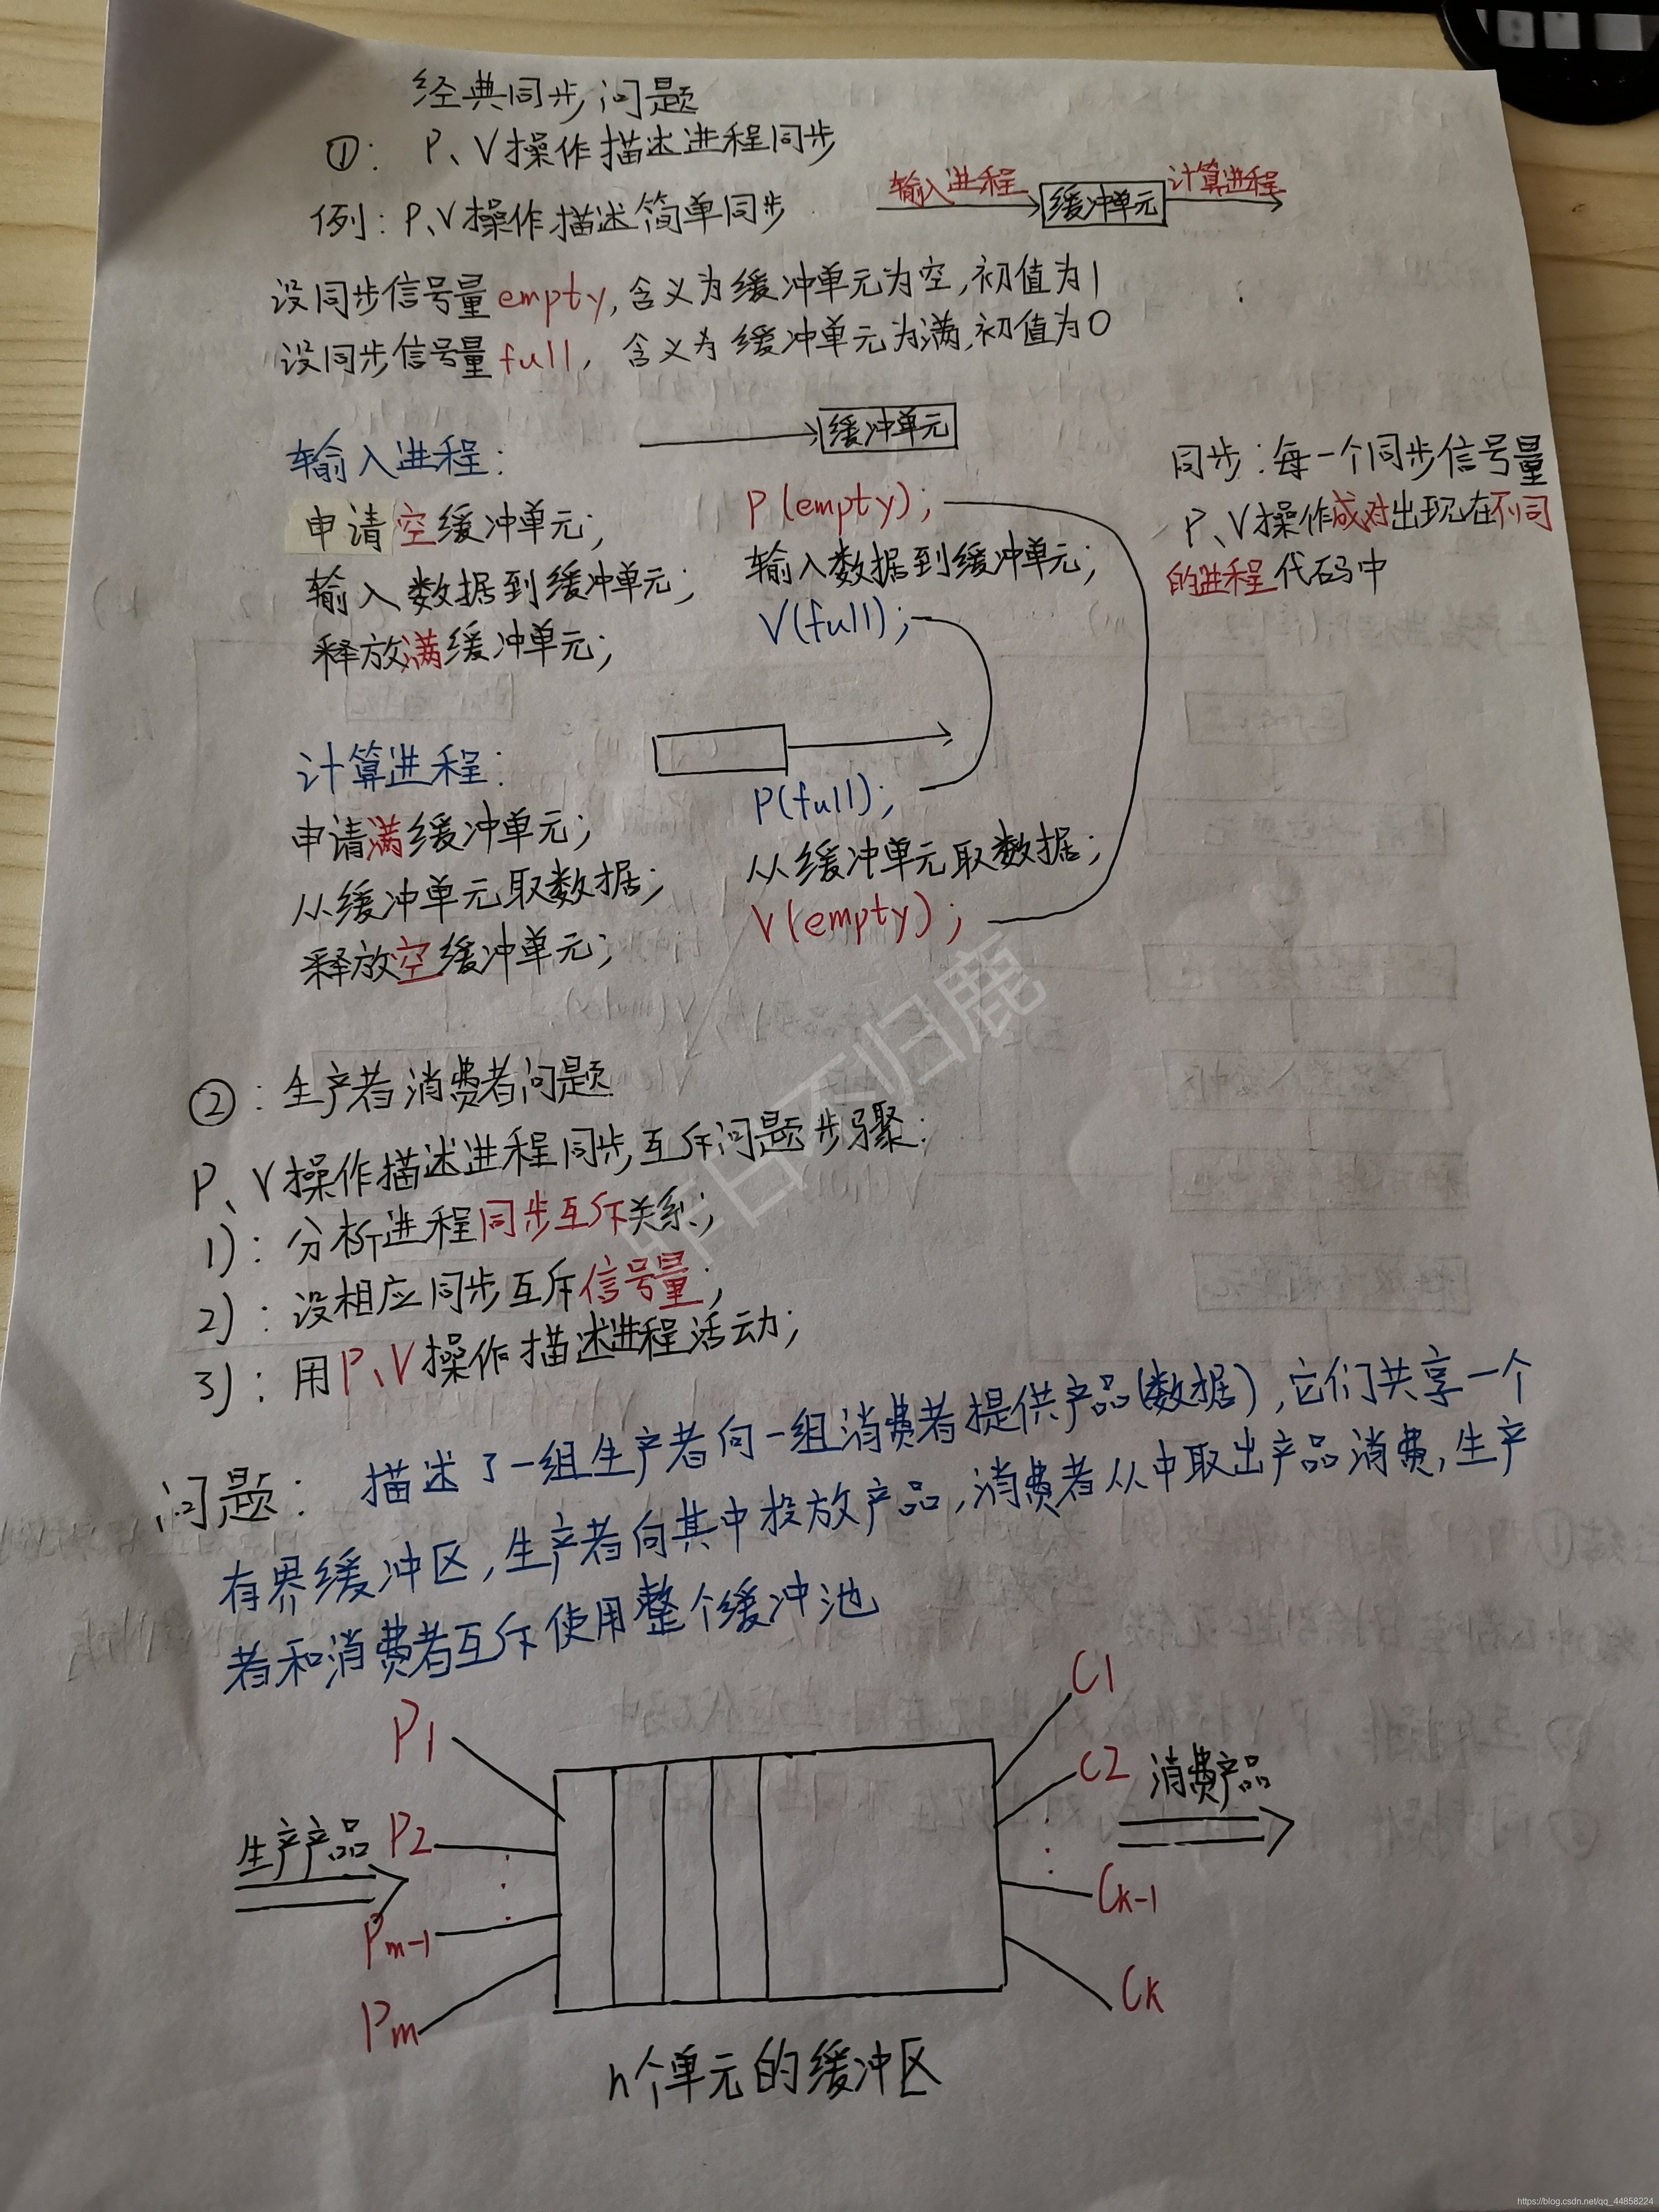 经典同步问题
①: P、V操作描述进程同步
例: P、V操作描述简单同步
输入进程 缓冲单元 计算进程
设同步信号量empty, 含义为缓冲单元为空, 初值为1
设同步信号量full, 含义为缓冲单元为满, 初值为0
输入进程:
申请空缓冲单元;
输入数据到缓冲单元;
释放满缓冲单元;
缓冲单元
P(empty);
输入数据到缓冲单元;
V(full);
同步: 每一个同步信号量
P、V操作成对出现在不同
的进程代码中
计算进程:
申请满缓冲单元;
从缓冲单元取数据;
释放空缓冲单元;
P(full);
从缓冲单元取数据;
V(empty);
②: 生产者消费者问题
P、V操作描述进程同步互斥问题步骤:
1): 分析进程同步互斥关系;
2): 设相应同步互斥信号量;
3): 用P、V操作描述进程活动;
问题: 描述了一组生产者向一组消费者提供产品(数据), 它们共享一个
有界缓冲区, 生产者向其中投放产品, 消费者从中取出产品消费, 生产
者和消费者互斥使用整个缓冲池
P1
生产产品 P2
Pm-1
Pm
C1
C2 消费产品
Ck-1
Ck
n个单元的缓冲区
昨日不归鹿
https://blog.csdn.net/qq_44858224